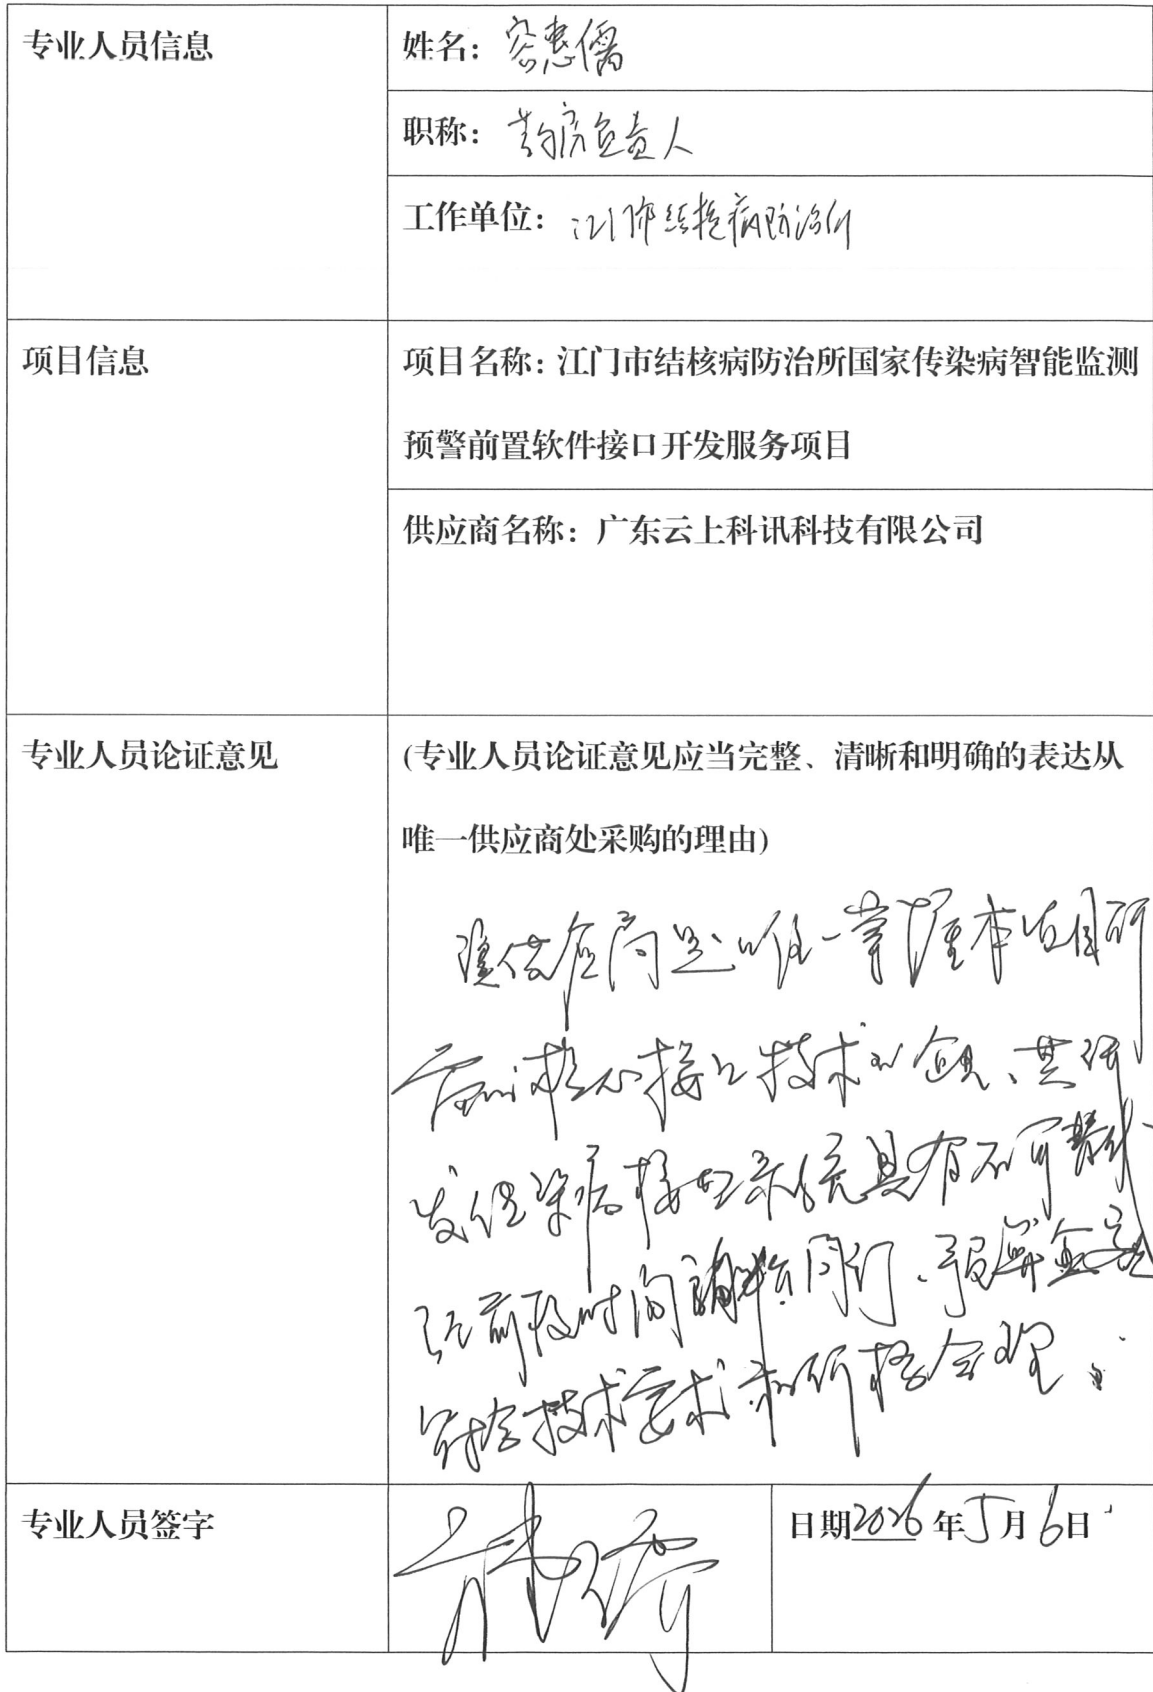 专业人员信息
姓名：容惠儒
职称：药房负责人
工作单位：江门市结核病防治所
项目信息
项目名称：江门市结核病防治所国家传染病智能监测
预警前置软件接口开发服务项目
供应商名称：广东云上科讯科技有限公司
专业人员论证意见
(专业人员论证意见应当完整、清晰和明确的表达从
唯一供应商处采购的理由)
供应商是唯一掌握本项目所
核心接口技术的企业、其研
发传染病接口系统具有不可替代
时间
符合技术要求 价格合理。
专业人员签字
日期2026年5月6日